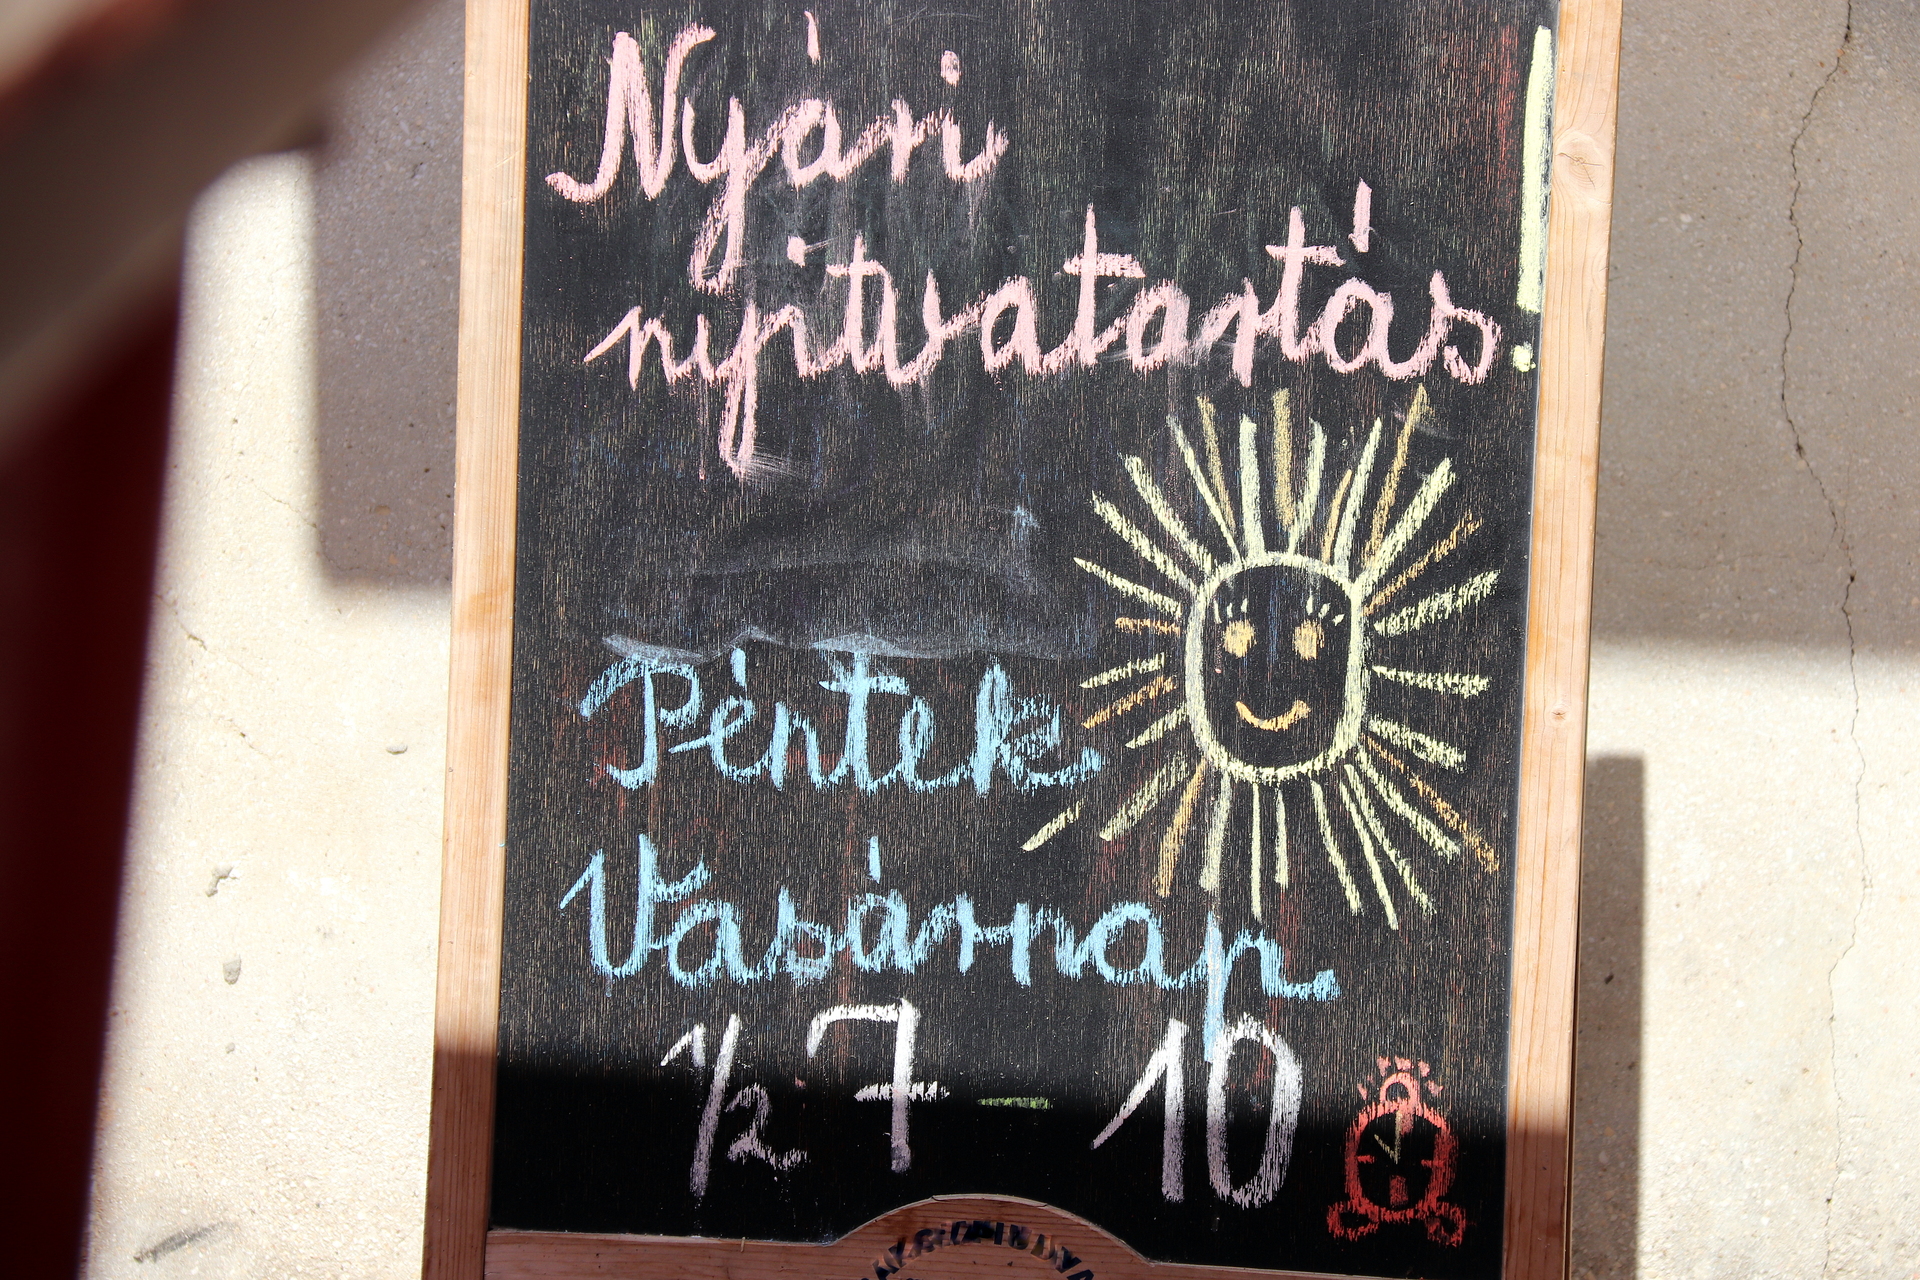 Nyári
nyitvatartás!
Péntek
Vasárnap
1/2 7 - 10